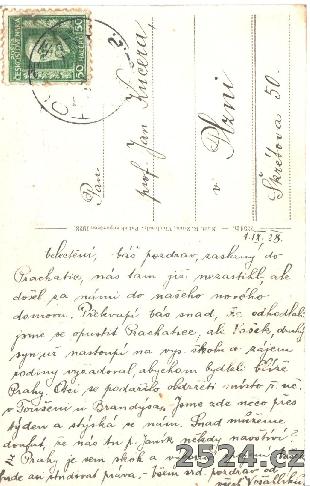 POŠTA
ČESKOSLOVENSKÁ
50 50
Pan
prof. Jan Kučera
v Plzni
Škrétova 50.
1.IX.28.
Velectění, Váš pozdrav, zaslaný do
Prachatic, nás tam již nezastihl ale
došel za námi do našeho nového
domova. Překvapí Vás snad, že odhodlali
jsme se opustit Prachatice, ale Vašek, druhý
syn, už nastoupí na vys. školu a zájem
rodiny vyžadoval, abychom bydleli blíže
Prahy. Otci se podařilo obdržeti místo
v Toušeni u Brandýsa. Jsme zde něco přes
týden a stýská se nám. Snad můžeme
doufat, že nás tu p. Janík někdy navštíví?
Z Prahy je sem skok a
bude an studovat práva, - Všem srd. pozdrav od
všech
2524.cz